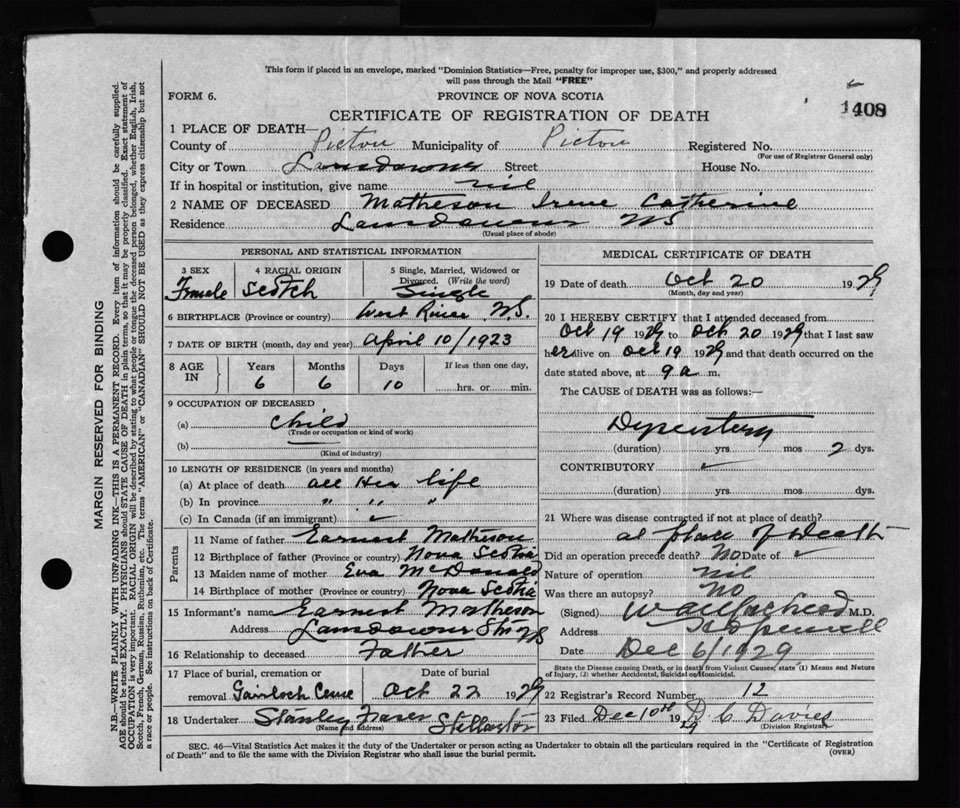 This form if placed in an envelope, marked "Dominion Statistics—Free, penalty for improper use, $300," and properly addressed
will pass through the Mail "FREE"
FORM 6.
PROVINCE OF NOVA SCOTIA
1408
CERTIFICATE OF REGISTRATION OF DEATH
1 PLACE OF DEATH—
County of Pictou Municipality of Pictou Registered No.
(For use of Registrar General only)
City or Town Lansdowne Street House No.
If in hospital or institution, give name nil
2 NAME OF DECEASED Matheson Irene Catherine
Residence Lansdowne NS
(Usual place of abode)
PERSONAL AND STATISTICAL INFORMATION
3 SEX 4 RACIAL ORIGIN 5 Single, Married, Widowed or
Divorced. (Write the word)
Female Scotch Single
6 BIRTHPLACE (Province or country) West River N.S.
7 DATE OF BIRTH (month, day and year) April 10/1923
8 AGE IN Years Months Days If less than one day,
6 6 10 hrs. or min.
9 OCCUPATION OF DECEASED
(a) Child
(Trade or occupation or kind of work)
(b)
(Kind of industry)
10 LENGTH OF RESIDENCE (in years and months)
(a) At place of death all Her life
(b) In province " " "
(c) In Canada (if an immigrant) ✓
Parents
11 Name of father Earnest Matheson
12 Birthplace of father (Province or country) Nova Scotia
13 Maiden name of mother Eva McDonald
14 Birthplace of mother (Province or country) Nova Scotia
15 Informant's name Earnest Matheson
Address Lansdowne Stn NS
16 Relationship to deceased Father
17 Place of burial, cremation or Date of burial
removal Gairloch Ceme Oct 22 1929
18 Undertaker Stanley Fraser Stellarton
(Name and address)
MEDICAL CERTIFICATE OF DEATH
19 Date of death Oct 20 1929
(Month, day and year)
20 I HEREBY CERTIFY that I attended deceased from
Oct 19 1929 to Oct 20 1929 that I last saw
her alive on Oct 19 1929 and that death occurred on the
date stated above, at 9 a m.
The CAUSE OF DEATH was as follows:—
Dysentery
(duration) yrs mos 2 dys.
CONTRIBUTORY ✓
(duration) yrs mos dys.
21 Where was disease contracted if not at place of death?
at place of Death
Did an operation precede death? No Date of ✓
Nature of operation nil
Was there an autopsy? No
(Signed) M.D.
Address
Date Dec 6/1929
State the Disease causing Death, or in death from Violent Causes, state (1) Means and Nature
of Injury, (2) whether Accidental, Suicidal or Homicidal.
22 Registrar's Record Number 12
23 Filed Dec 10th 1929 D. C. Davies
(Division Registrar)
SEC. 46—Vital Statistics Act makes it the duty of the Undertaker or person acting as Undertaker to obtain all the particulars required in the "Certificate of Registration
of Death" and to file the same with the Division Registrar who shall issue the burial permit.
(OVER)
MARGIN RESERVED FOR BINDING
N.B.—WRITE PLAINLY WITH UNFADING INK—THIS IS A PERMANENT RECORD. Every item of information should be carefully supplied.
AGE should be stated EXACTLY. PHYSICIANS should STATE CAUSE OF DEATH in plain terms, so that it may be properly classified. Exact statement of
OCCUPATION is very important. RACIAL ORIGIN will be described by stating to what people or tongue the deceased person belonged, whether English, Irish,
Scotch, French, German, Russian, Ruthenian, etc. The terms "AMERICAN" or "CANADIAN" SHOULD NOT BE USED as they express citizenship but not
a race or people. See instructions on back of Certificate.